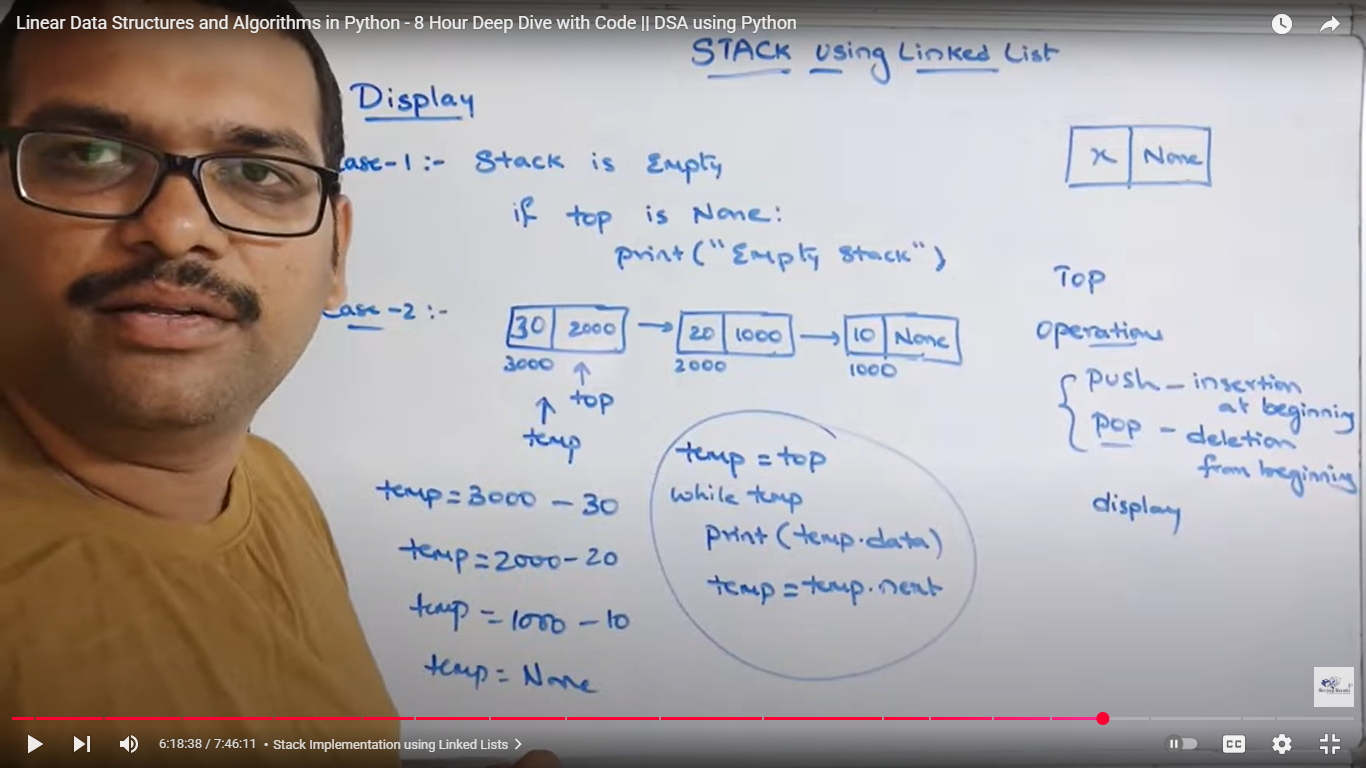 Linear Data Structures and Algorithms in Python - 8 Hour Deep Dive with Code || DSA using Python
STACK using Linked List
Display
case-1 :- Stack is Empty
if top is None:
print("Empty Stack")
case-2 :-
30 2000 → 20 1000 → 10 None
3000 2000 1000
top
temp
temp = 3000 - 30
temp = 2000 - 20
temp = 1000 - 10
temp = None
temp = top
while temp
print(temp.data)
temp = temp.next
x None
Top
operations
push - insertion
at beginning
pop - deletion
from beginning
display
6:18:38 / 7:46:11 • Stack Implementation using Linked Lists >
CC